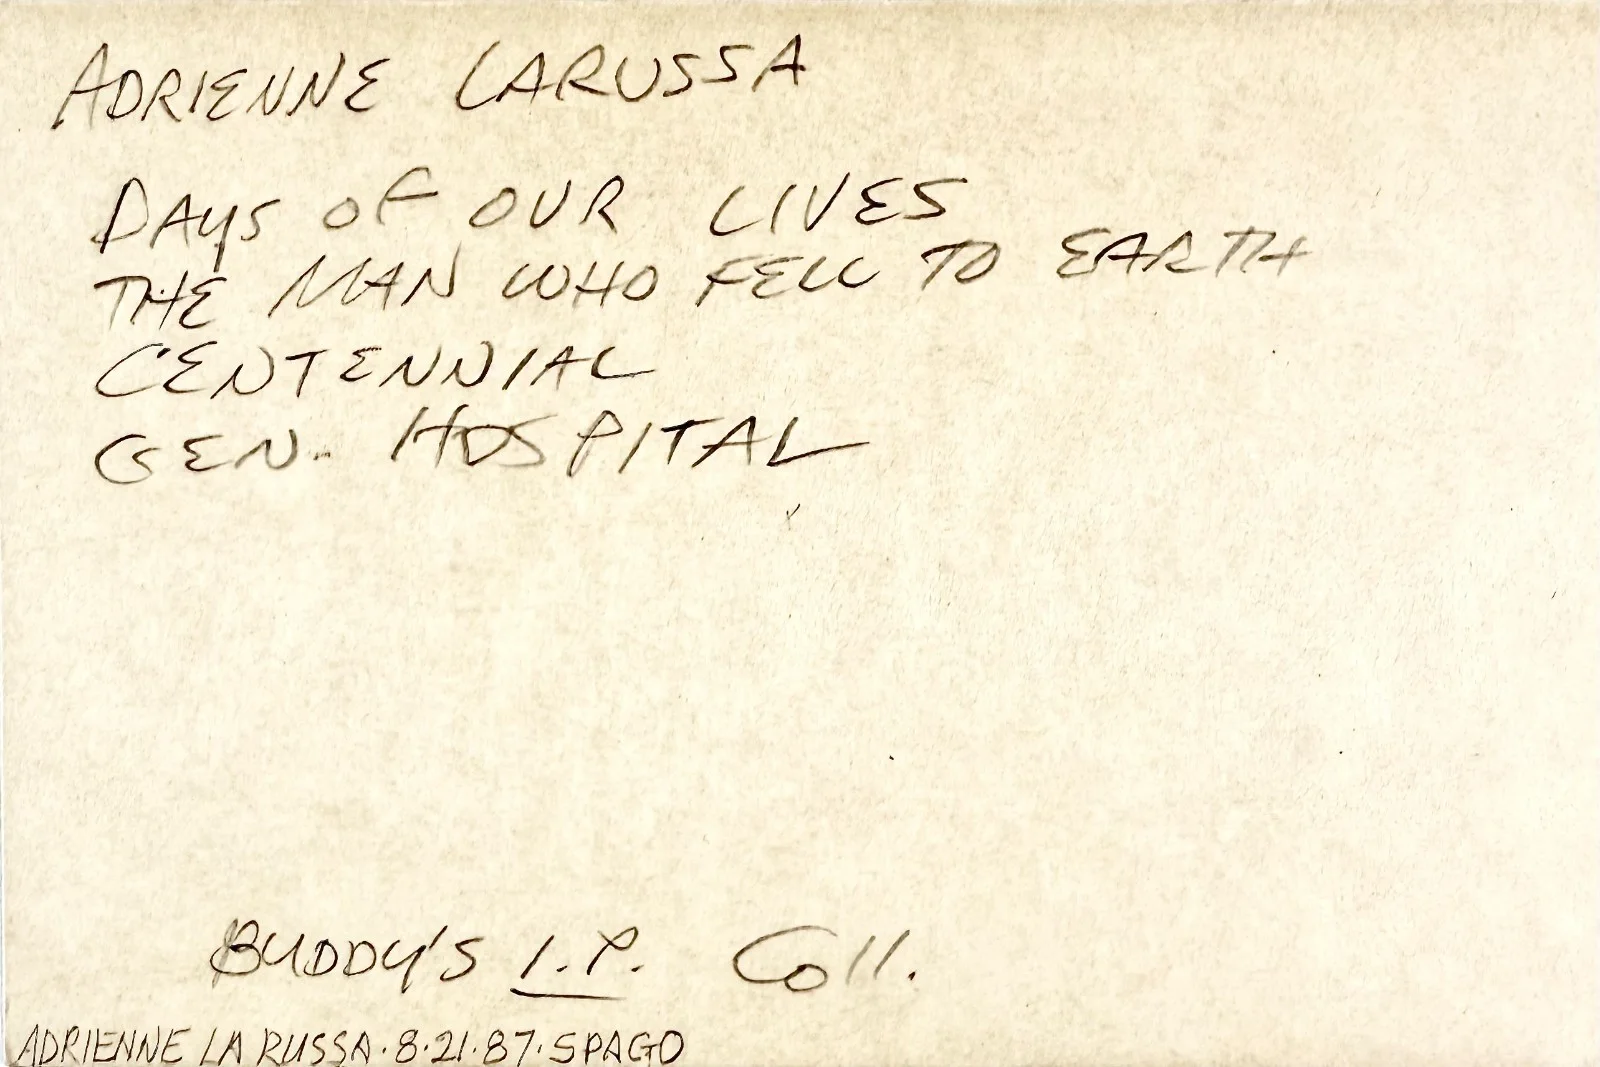 ADRIENNE LARUSSA
DAyS OF OUR LIVES
THE MAN WHO FELL TO EARTH
CENTENNIAL
GEN. HOSPITAL
BUDDY'S I.P. Coll.
ADRIENNE LA RUSSA·8·21·87·SPAGO